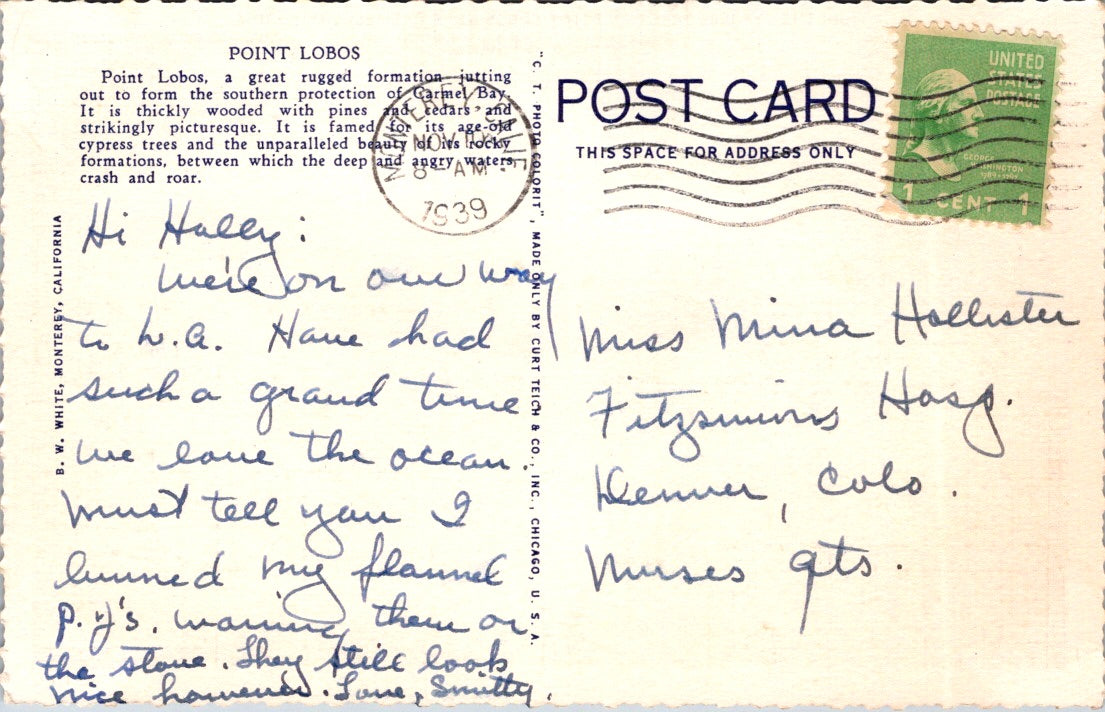 POINT LOBOS
Point Lobos, a great rugged formation jutting
out to form the southern protection of Carmel Bay.
It is thickly wooded with pines and cedars and
strikingly picturesque. It is famed for its age-old
cypress trees and the unparalleled beauty of its rocky
formations, between which the deep and angry waters
crash and roar.
B. W. WHITE, MONTEREY, CALIFORNIA
Hi Holly:
We're on our way
to L.A. Have had
such a grand time
we love the ocean.
Must tell you I
burned my flannel
P.J's. warming them on
the stove. They still look
nice however. Love, Smitty.
"C. T. PHOTO COLORIT", MADE ONLY BY CURT TEICH & CO., INC., CHICAGO, U. S. A.
MONTEREY, CALIF.
NOV
8 AM
1939
POST CARD
THIS SPACE FOR ADDRESS ONLY
UNITED
STATES
POSTAGE
GEORGE
WASHINGTON
1789-1797
1 CENT 1
Miss Mina Hollister
Fitzsimons Hosp.
Denver, Colo.
Nurses qts.